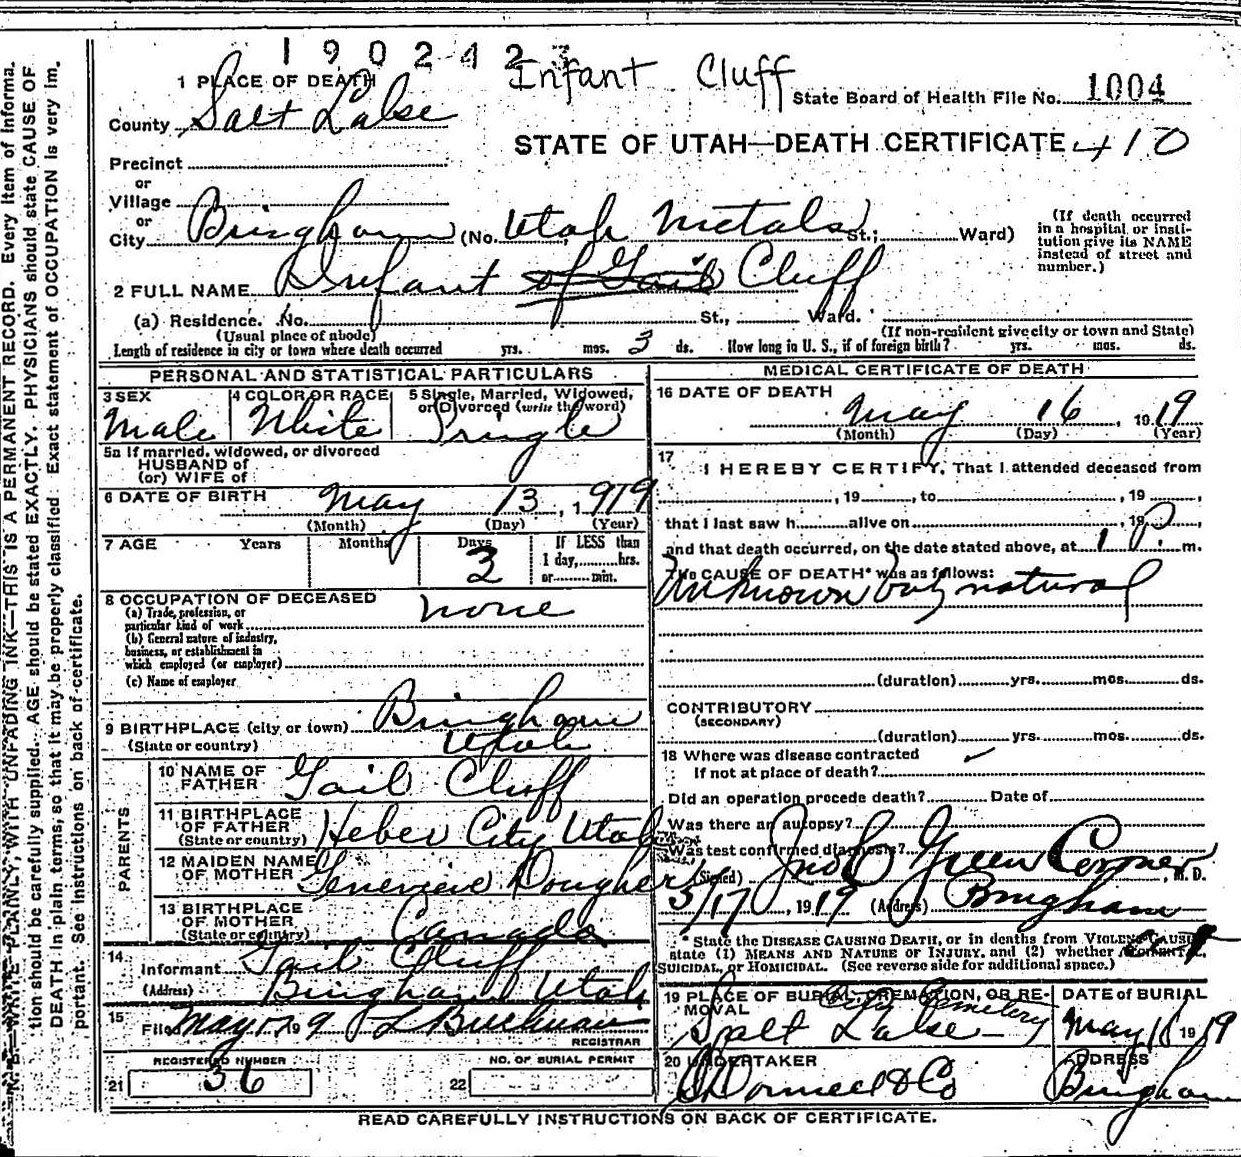 1902423
Infant Cluff
1 PLACE OF DEATH
State Board of Health File No. 1004
County Salt Lake
STATE OF UTAH—DEATH CERTIFICATE 410
Precinct
or
Village
or
City Bingham (No. Utah Metals St.; Ward)
(If death occurred in a hospital or institution give its NAME instead of street and number.)
2 FULL NAME Infant of Gail Cluff
(a) Residence. No. St., Ward.
(Usual place of abode) (If non-resident give city or town and State)
Length of residence in city or town where death occurred yrs. mos. 3 ds. How long in U. S., if of foreign birth? yrs. mos. ds.
PERSONAL AND STATISTICAL PARTICULARS
3 SEX Male
4 COLOR OR RACE White
5 Single, Married, Widowed, or Divorced (write the word) Single
5a If married, widowed, or divorced
HUSBAND of
(or) WIFE of
6 DATE OF BIRTH May 13, 1919
(Month) (Day) (Year)
7 AGE Years Months Days 3
If LESS than 1 day, hrs. or min.
8 OCCUPATION OF DECEASED none
(a) Trade, profession, or
particular kind of work
(b) General nature of industry,
business, or establishment in
which employed (or employer)
(c) Name of employer
9 BIRTHPLACE (city or town) Bingham
(State or country) Utah
PARENTS
10 NAME OF FATHER Gail Cluff
11 BIRTHPLACE OF FATHER (State or country) Heber City Utah
12 MAIDEN NAME OF MOTHER Genevieve
13 BIRTHPLACE OF MOTHER (State or country) Canada
14 Informant Gail Cluff
(Address) Bingham Utah
15 Filed May 17, 1919 Buchman
REGISTRAR
REGISTERED NUMBER
21 36
NO. OF BURIAL PERMIT
22
MEDICAL CERTIFICATE OF DEATH
16 DATE OF DEATH
May 16, 1919
(Month) (Day) (Year)
17 I HEREBY CERTIFY, That I attended deceased from
, 19 , to , 19 ,
that I last saw h alive on , 19 ,
and that death occurred, on the date stated above, at 1 P. m.
The CAUSE OF DEATH* was as follows:
Unknown but natural
(duration) yrs. mos. ds.
CONTRIBUTORY
(SECONDARY)
(duration) yrs. mos. ds.
18 Where was disease contracted
If not at place of death?
Did an operation precede death? Date of
Was there an autopsy?
What test confirmed diagnosis?
(Signed) Jno C Green Coroner, M. D.
5/17, 1919 (Address) Bingham
* State the DISEASE CAUSING DEATH, or in deaths from VIOLENT CAUSES,
state (1) MEANS AND NATURE OF INJURY, and (2) whether ACCIDENTAL,
SUICIDAL, or HOMICIDAL. (See reverse side for additional space.)
19 PLACE OF BURIAL, CREMATION, OR REMOVAL City Cemetery
Salt Lake
DATE of BURIAL
May 18 1919
20 UNDERTAKER
O'Donnell & Co
ADDRESS
Bingham
READ CAREFULLY INSTRUCTIONS ON BACK OF CERTIFICATE.
N. B.—WRITE PLAINLY, WITH UNFADING INK—THIS IS A PERMANENT RECORD. Every item of informa-
tion should be carefully supplied. AGE should be stated EXACTLY. PHYSICIANS should state CAUSE OF
DEATH in plain terms, so that it may be properly classified. Exact statement of OCCUPATION is very im-
portant. See instructions on back of certificate.